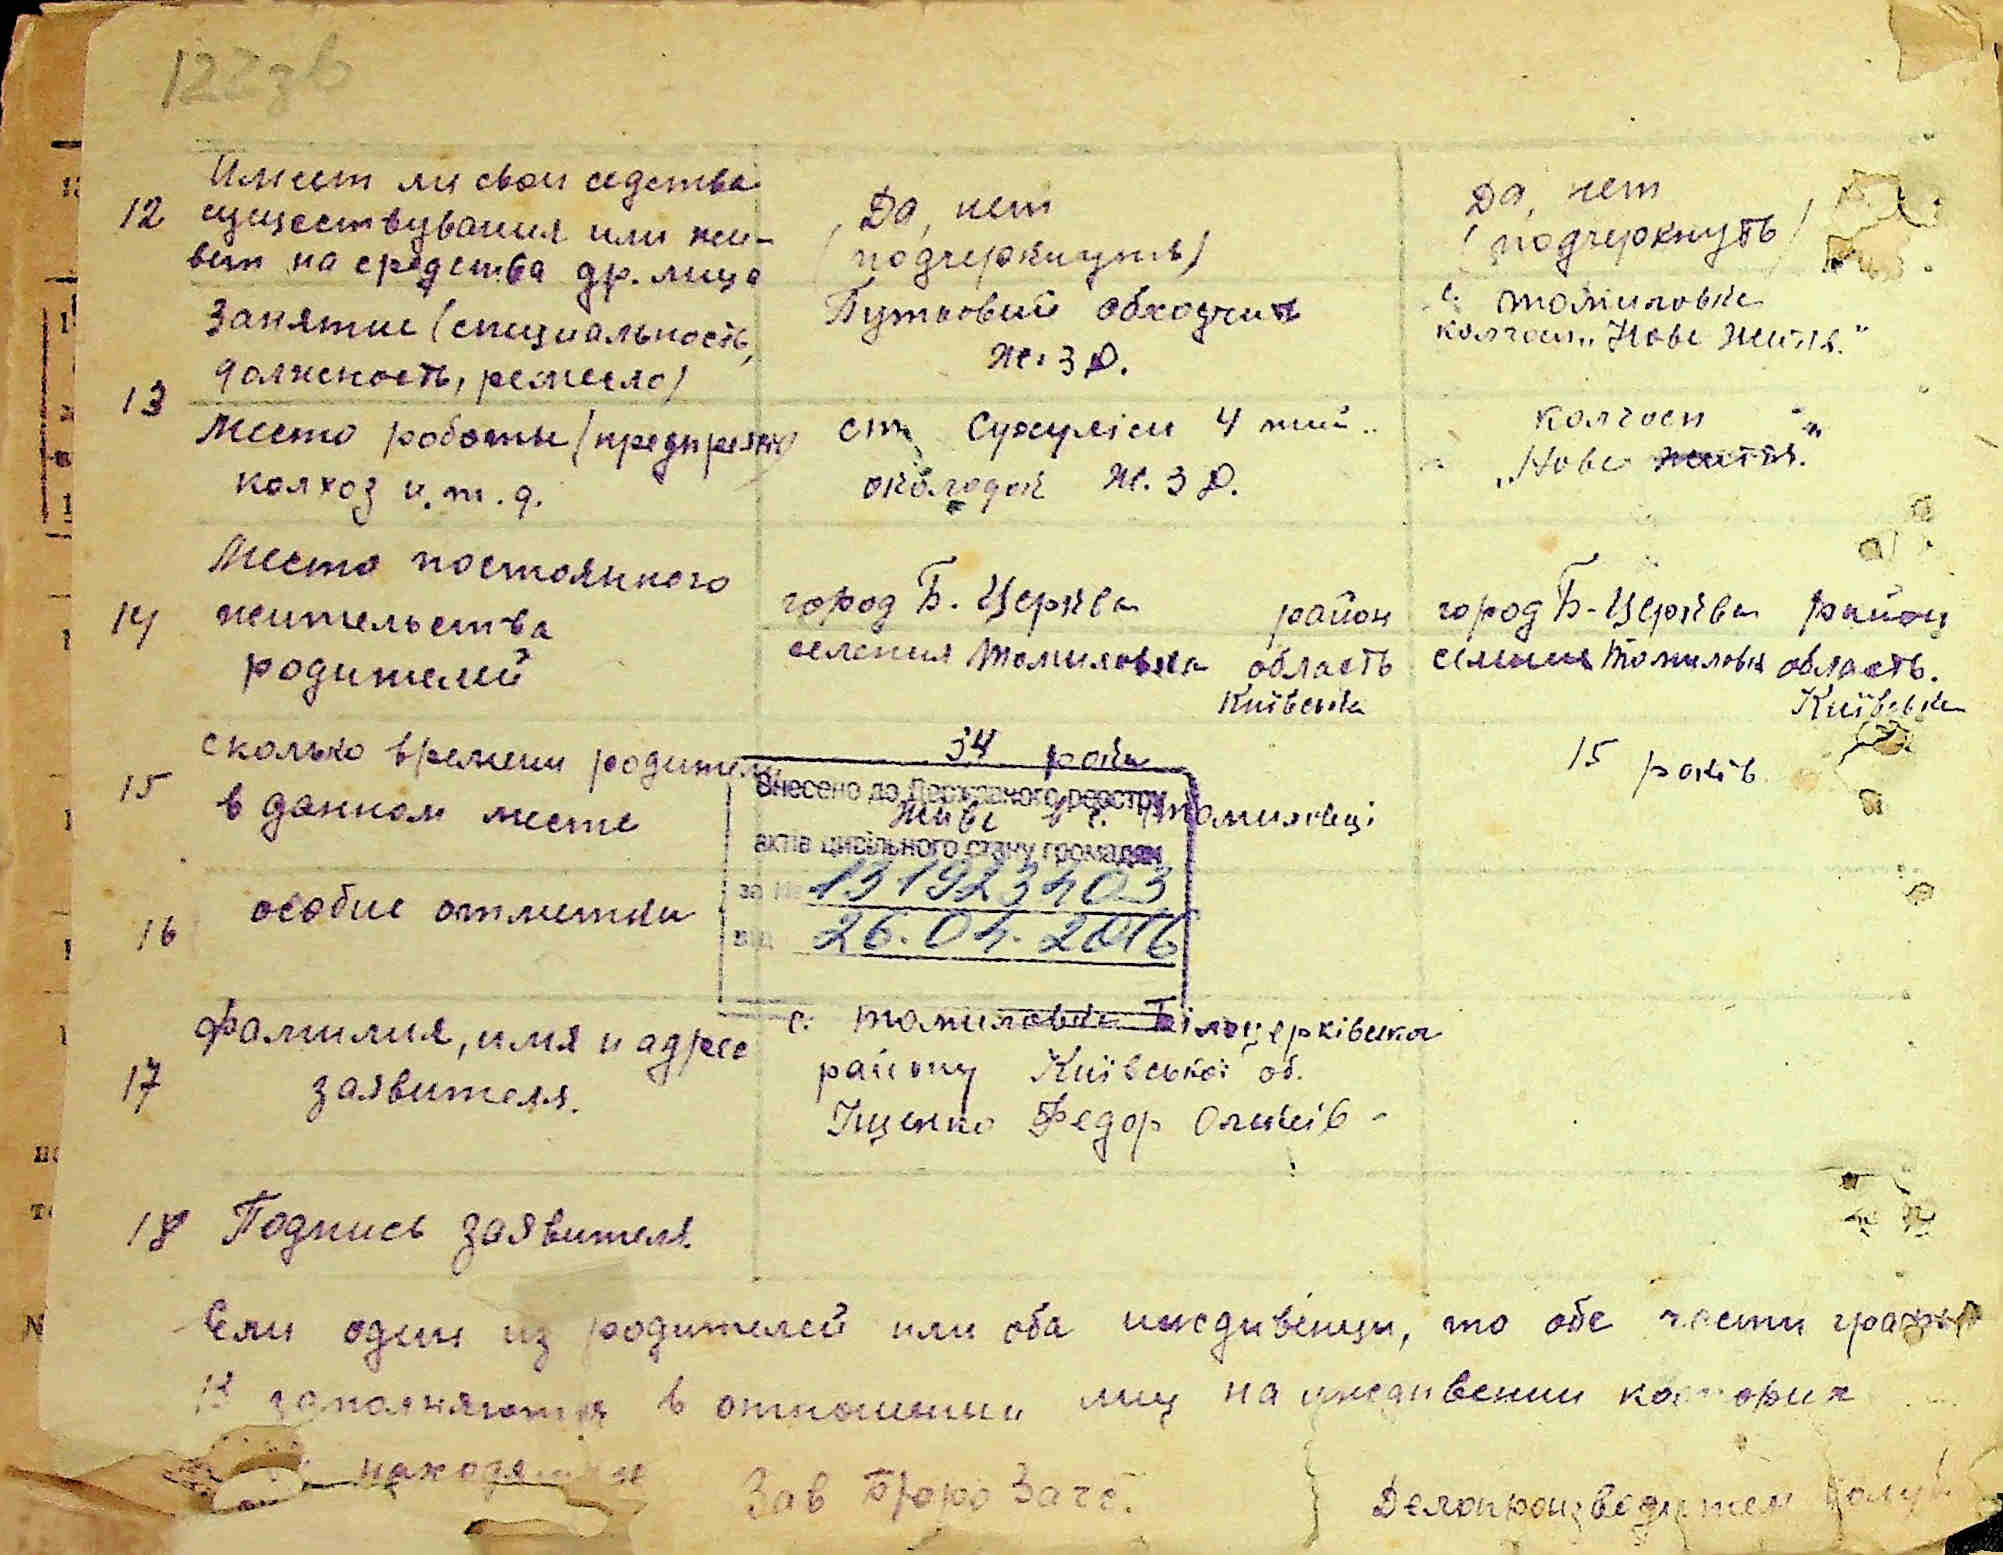 122зв
Имеет ли свои седства
12 существувания или жи-
вет на средства др. лица
Да, нет
(подчеркнуть)
Да, нет
(подчеркнуть)
Занятие (специальность,
должность, ремесло)
Путьовий обходчик
Ж.З.Д.
с. Томиловка
колгосп „Нове Життя."
13
Место роботы (предприят
колхоз и. т. д.
ст. Сухуліси 4 тий
околодок Ж.З.Д.
колгосп
„Нове життя.
14
Место постоянного
жительства
родителей
город Б. Церква район
селения Томиловка область
Київська
город Б-Церква район
селения Томиловка область.
Київська
15
сколько времени родители
в данном месте
34 роки
живе в с. Томиловці
15 років
Внесено до Державного реєстру
актів цивільного стану громадян
за № 131923403
від 26.04.2016
16 особые отметки
17
Фамилия, имя и адрес
заявителя.
с. Томиловка Білоцерківська
району Київської об.
Іщенко Федор
18 Подпись заявителя.
Если один из родителей или оба иждивенци, то обе части графы
13 заполняются в отношении лиц на иждивении которих
находятся
Зав Бюро Загс.
Делопроизводител